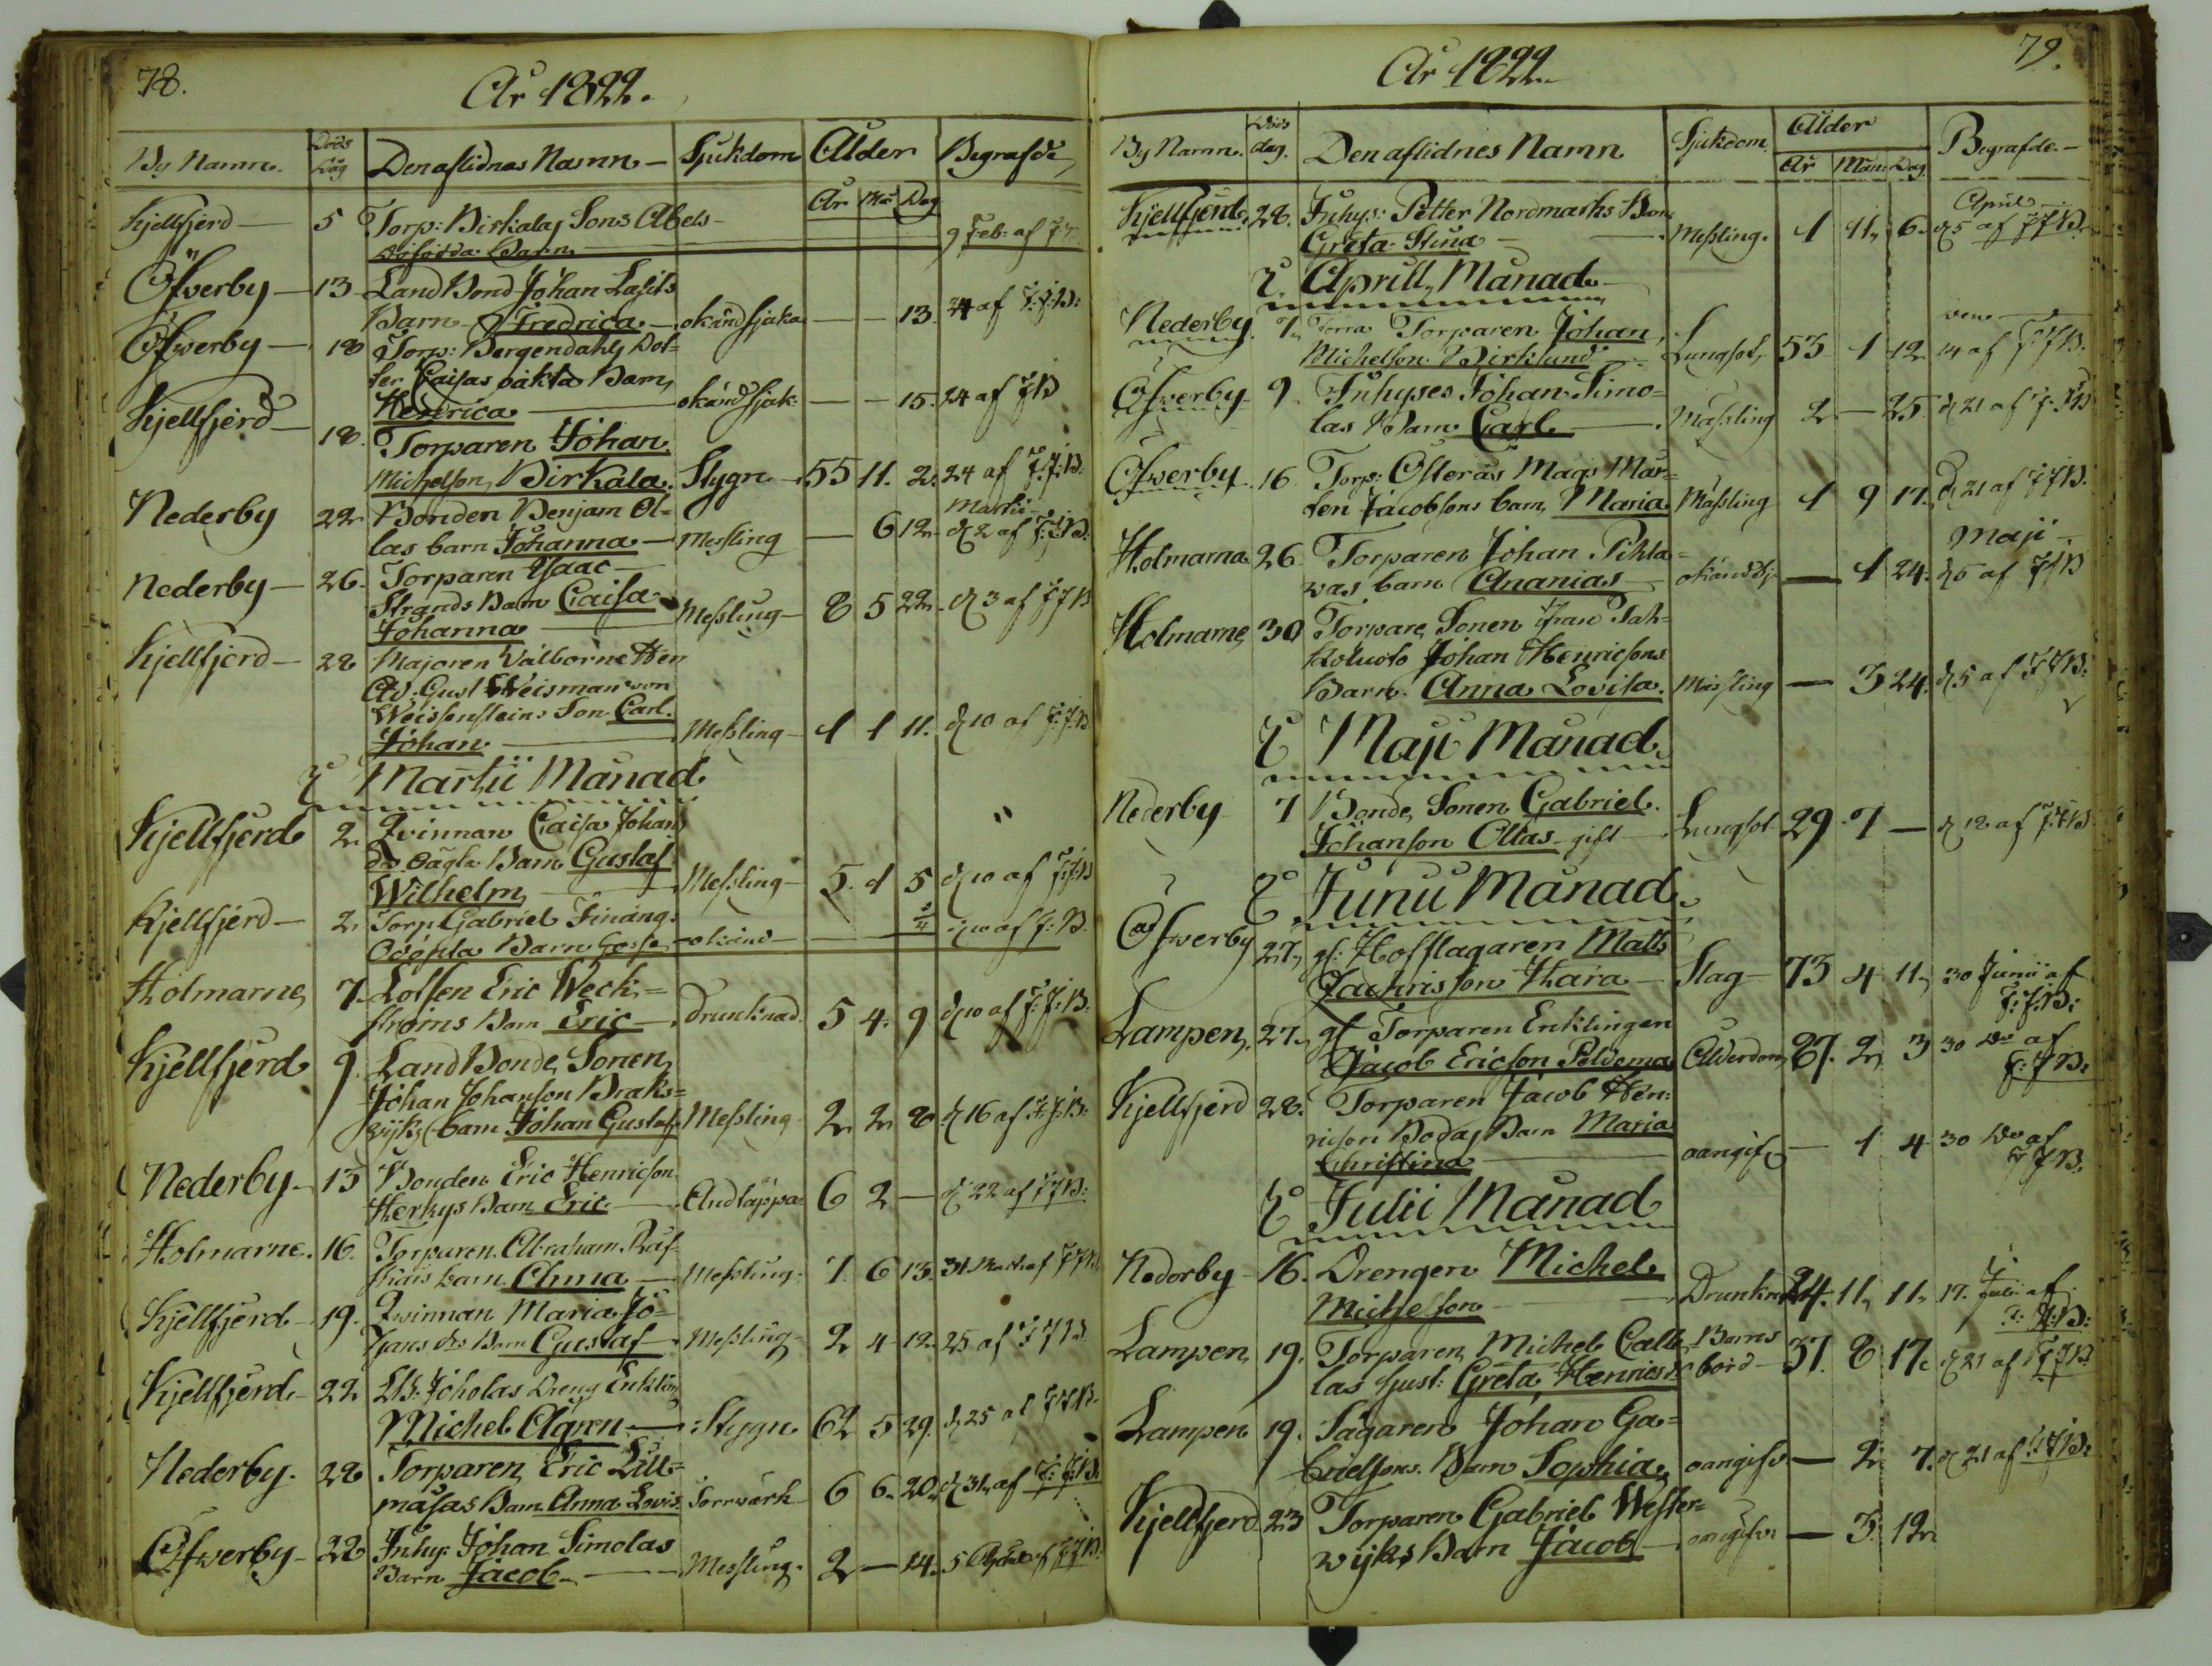 78.
År 1822.
By Namn. Döds Dag Den aflidnas Namn Sjukdom Ålder Begrafde
År Må Dag
Kjellfjerd 5 Torp: Birkalas Sons Abels
Barn 9 Feb: af
Öfwerby 13 Land Bond Johan Lasils
Barn Fredrica okänd sjuka — — 13. 24 af F:J:B:
Öfwerby 18 Torp: Bergendahls Dot-
ter Caisas oäkta Barn,
Hendrica okänd sjuk: — — 15. 24 af JB
Kjellfjerd 18. Torparen Johan
Michelson, Birkala. Stygn 55 11. 2. 24 af F:J:B:
Martii
Nederby 22 Bonden Benjam Ol-
las barn Johanna Messling — 6 12 d 2 af F:J:B:
Nederby 26. Torparen Isaac
Strands Barn Caisa
Johanna Messling 8 5 22 d 3 af FJB
Kjellfjerd 28 Majoren Välborne Herr
Ad: Gust Weisman von
Weissensteins Son Carl
Johan Messling 1 1 11. d 10 af F:J:B
I Martii Månad
Kjellfjerd 2. Qvinnan Caisa Johans
do oägta Barn Gustaf
Wilhelm Messling 5. 1 5 d 10 af F:J:B
Kjellfjerd 2 Torp Gabriel Finängs
Odöpta Barn Gosse okänd d 10 af J:B.
Holmarne, 7. Lotsen Eric Weck-
ströms Barn Eric Drunknad 5 4. 9 d 10 af F:J:B:
Kjellfjerd 9 Land Bonde Sonen
Johan Johanson Braks-
wijks barn Johan Gustaf Messling 2 2 8. d 16 af F:J:B:
Nederby 13 Bonden Eric Henricson
Herkys Barn Eric Andtäppa 6 2 — d 22 af FJB:
Holmarne. 16. Torparen Abraham
barn Anna Messling: 1 6 13. 31 Mart af FJB
Kjellfjerd 19. Qwinnan Maria Jo-
hans do Barn Gustaf Messling 2 4 12. 25 af FJB
Kjellfjerd 22 Joholas Dreng Enkling
Michel Ågren Stygn 62 5 29. d 25 af FJB
Nederby. 28 Torparen Eric Lill-
mäsas Barn Anna Lovis. Torrwärk 6 6. 20. d 31. af F:J:B.
Öfwerby 28 Inhy: Johan Simolas
Barn Jacob Messling. 2 — 14. 5 April af FJB.
79.
År 1822.
By Namn. Döds dag. Den aflidnes Namn Sjukdom. Ålder Begrafde.
År Mån: Dag
April
Kjellfjerd, 28. Inhys: Petter Nordmarks Barn
Greta Stina Messling. 1 11, 6. d 5 af FJB.
I Aprill, Månad
Nederby 7, Förra Torparen Johan
Michelson Birklund Lungsot, 53 1 12 14 af FJB.
Öfwerby 9. Inhyses Johan Simo-
las Barn Carl Mässling 2 — 25. d 21 af F.JB
Öfwerby 16 Torp: Osterås Mågs Mår-
ten Jacobsons barn, Maria Mässling 1 9 17. d 21 af FJB.
Maji
Holmarna 26 Torparen Johan Pikla-
was barn Ananias okänd sj: — 1 24. d 5 af FJB
Holmarne, 30 Torpare Sonen ifran Pah-
koluoto Johan Henricsons
Barn Anna Lovisa. Mässling — 3 24. d 5 af FJB.
I Maji Månad
Nederby 7 Bonde Sonen Gabriel
Johanson Ollas gift Lungsot 29 7 — d 12 af F:J:B.
I Junii Månad
Öfwerby 27, gl: Hofslagaren Matts
Zachrisson Kara Slag 73 4 11, 30 Junii af
F:J:B:
Lampen, 27, gl Torparen Enklingen
Jacob Ericson Poldema Ålderdom, 87. 2, 3 30 do af
F:JB:
Kjellfjerd 28. Torparen Jacob Hen-
ricson Bodas Barn Maria
Christina oangifv — 1 4 30 do af
FJB.
I Julii Månad
Nederby 16. Drengen Michel
Michelson Drunkn 24. 11, 11, 17. Juli af
F:J:B:
Lampen, 19. Torparen Michel Call- Barns
las Hust: Greta Henricsr börd 37. 8 17. d 21 af FJB
Lampen 19. Sågaren Johan Ga-
brielsons Barn Sophia oangifv — 2. 7. d 21 af FJB.
Kjellfjerd 23 Torparen Gabriel Wester-
wijks Barn Jacob oangifv — 3. 12